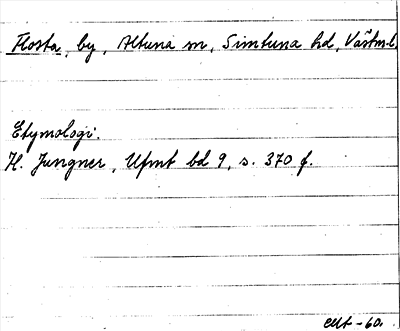 Flosta, by, Altuna sn, Simtuna hd, Västm.l.
Etymologi.
H. Jungner, Ufmt bd 9, s. 370 f.
-60.